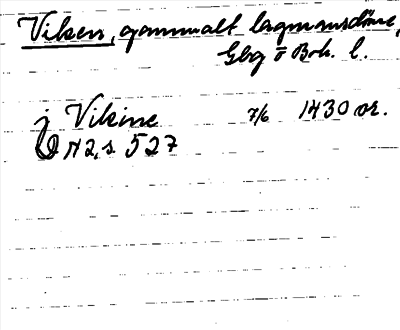 Viken, gammalt lagmansdöme,
Gbg o Boh. l.
j Vikine 7/6 1430 or.
N 2, s 527